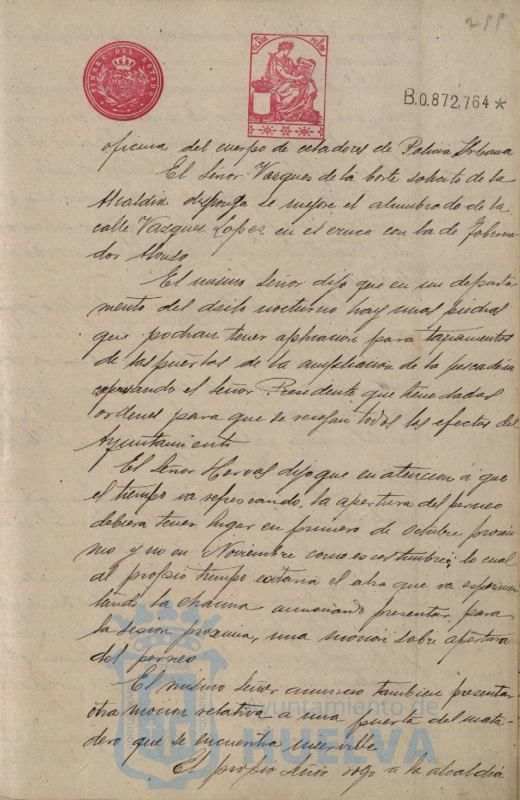 288
TIMBRE DEL ESTADO
B.0.872,764 *
oficina del cuerpo de celadores de Policia Urbana
El Señor Vazquez de la Corte solicitó de la
Alcaldia disponga se mejore el alumbrado de la
calle Vazquez Lopez en el cruce con la de Goberna-
dor Alonso
El mismo Señor dijo que en un departa-
mento del asilo nocturno hay unas piedras
que podrian tener aplicacion para tapamentos
de las puertas de la ampliacion de la pescaderia
el Señor Presidente que tiene dadas
ordenes para que se recojan todos los efectos del
Ayuntamiento
El Señor Hervas dijo que en atencion á que
el tiempo va refrescando, la apertura del perneo
debiera tener lugar en primero de Octubre proxi-
mo y no en Noviembre como es costumbre; lo cual
al propio tiempo evitaria el alza que va experimen-
tando la chacina anunciando presentar, para
la sesion proxima, una mocion sobre apertura
del perneo
El mismo Señor anunció tambien presentar
otra mocion relativa a una puerta del mata-
dero que se encuentra inservible
El propio Señor rogó a la alcaldia
Ayuntamiento de
HUELVA